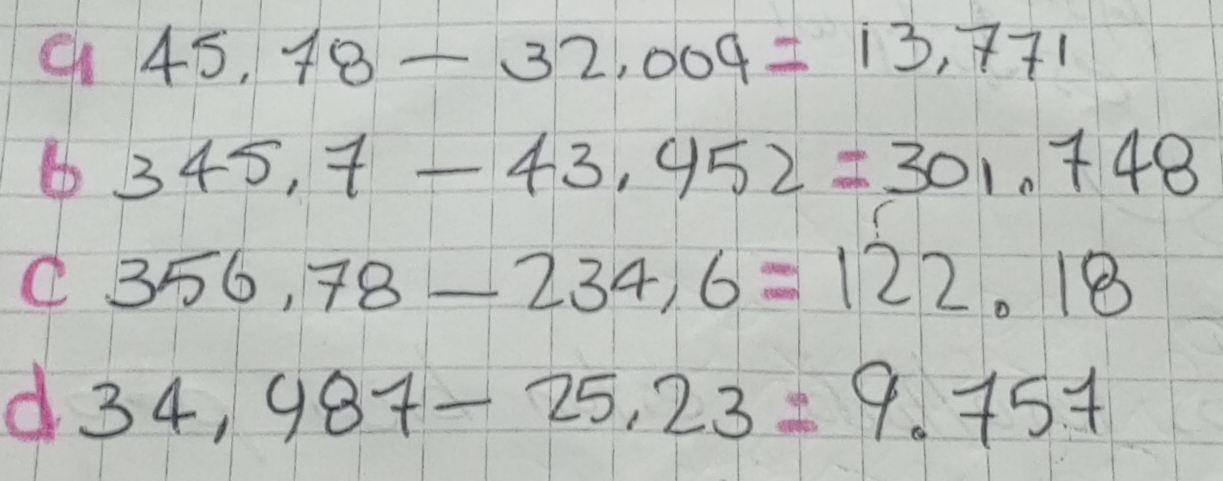 a 45,78 - 32,009 = 13,771
b 345,7 - 43,952 = 301.748
c 356,78 - 234,6 = 122.18
d 34,987 - 25,23 = 9.757